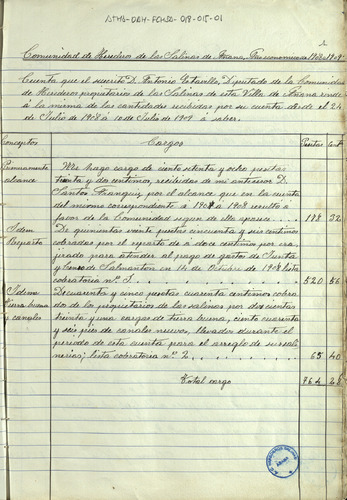 ATHA-DAH-FCHSD-018-015-01
1
Comunidad de Herederos de las Salinas de Añana, Año economico de 1908 a 1909
Cuenta que el suscrito D. Antonio Estavillo, Diputado de la Comunidad
de Herederos propietarios de las Salinas de esta Villa de Añana rinde
á la misma de las cantidades recibidas por su cuenta desde el 24
de Julio de 1908 á 10 de Julio de 1909 á saber.
Conceptos Cargos Pesetas Cent
Primeramente Me hago cargo de ciento setenta y ocho pesetas
alcance treinta y dos centimos, recibidas de mi antecesor D.
Santos Frangüiz, por el alcance que en la cuenta
del mismo correspondiente á 1907 á 1908 resultó á
favor de la Comunidad segun de ella aparece 178 32
Idem De quinientas veinte pesetas cincuenta y seis centimos
Reparto cobradas por el reparto de á doce centimos por era
jirado para atender al pago de gastos de Junta
y Conso de Salmanton en 14 de Octubre de 1908 lista
cobratoria nº 1 520 56
Idem De cuarenta y cinco pesetas cuarenta centimos cobra
tierra buena do de los propietarios de las salinas por doscientas
y canales treinta y una cargas de tierra buena, ciento cuarenta
y seis pies de canales nuevos, llevados durante el
periodo de esta cuenta para el arreglo de sus sali
nerias; lista cobratoria nº 2 65 40
Total cargo 764 28